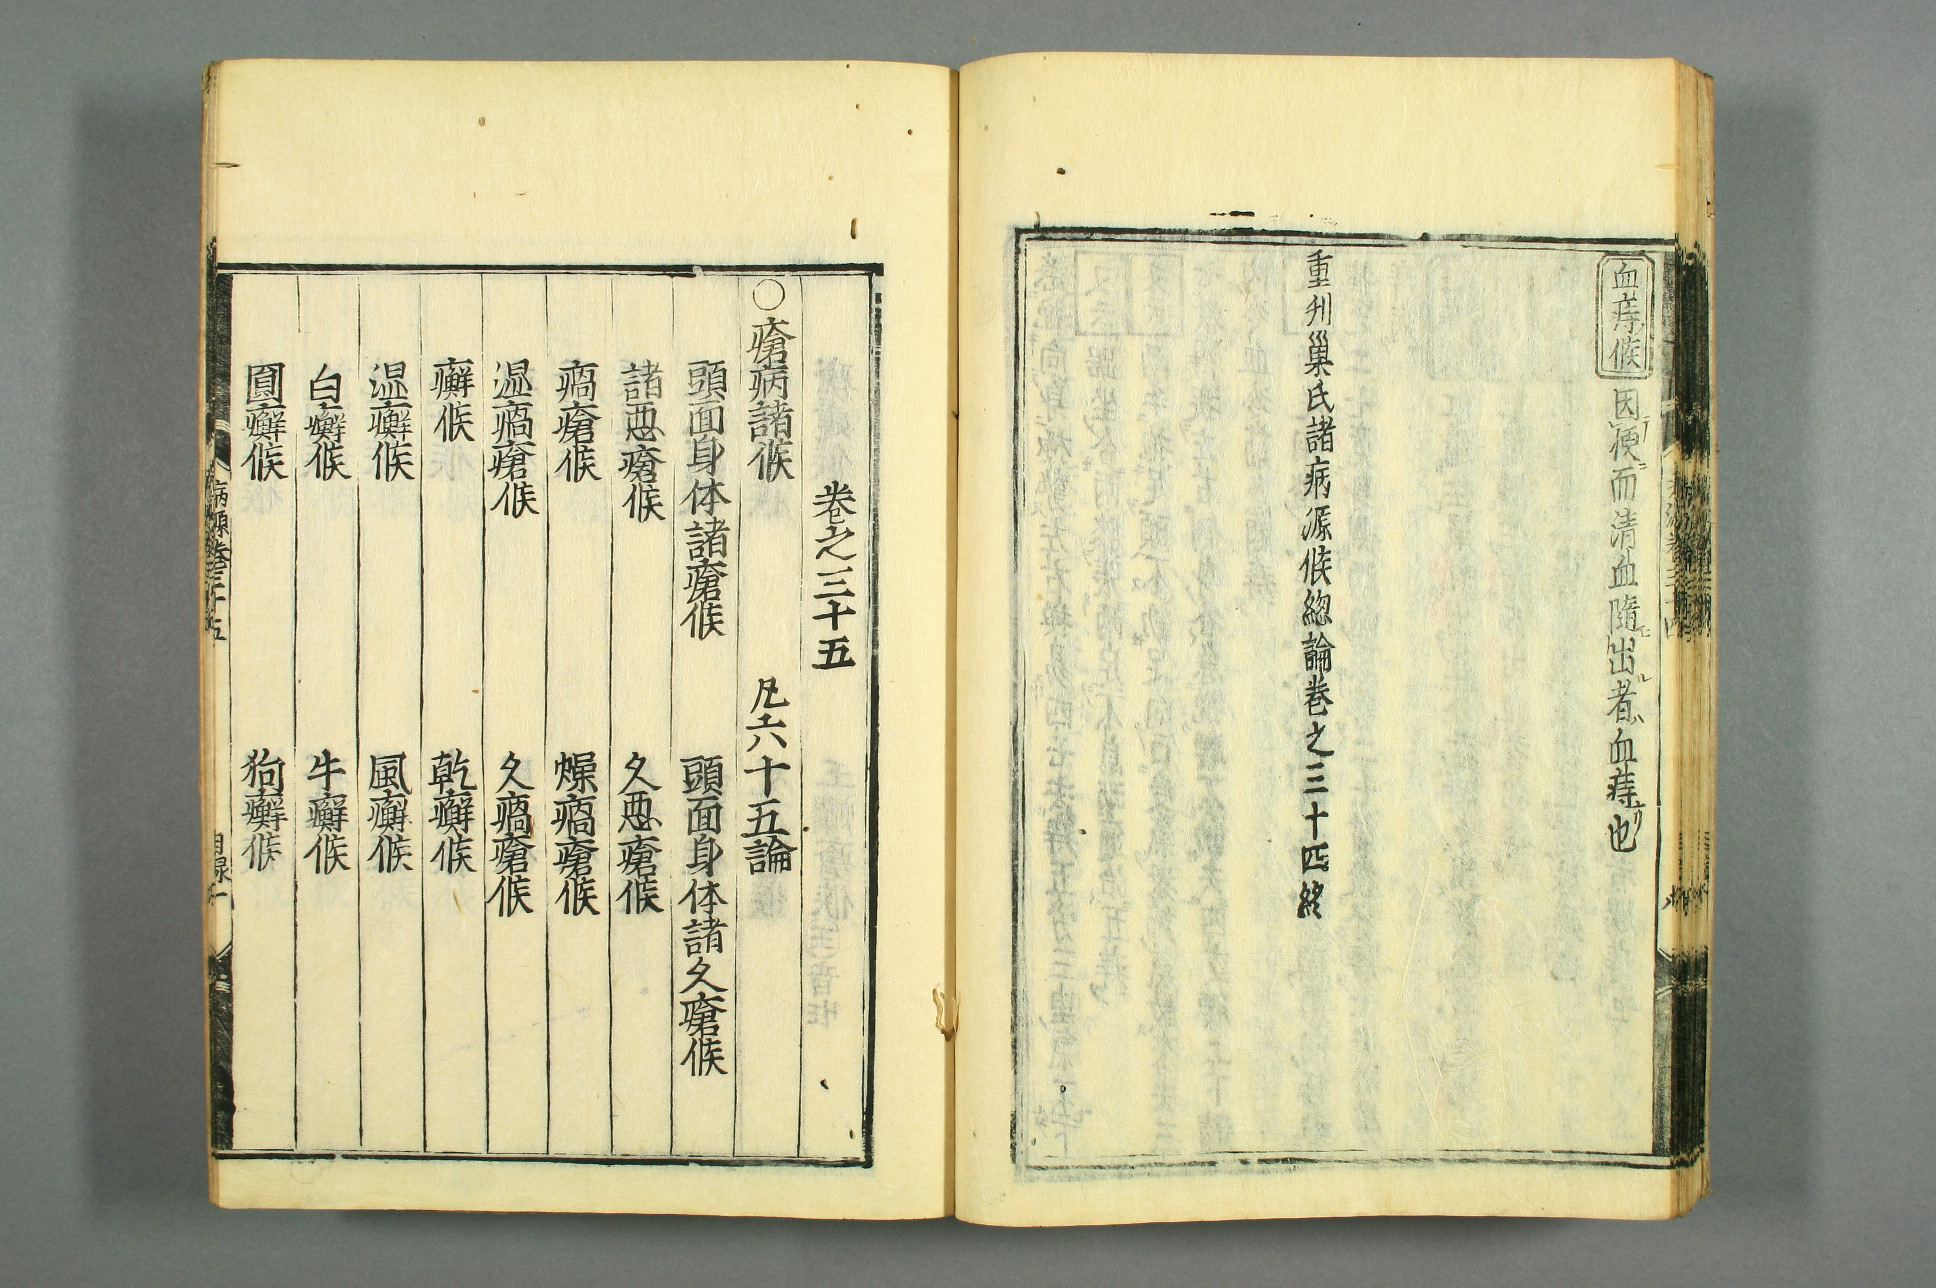 血痔候 因便而清血隨出者血痔也
重刋巢氏諸病源候總論卷之三十四終
卷之三十五
○瘡病諸候 凡六十五論
頭面身体諸瘡候 頭面身体諸久瘡候
諸悪瘡候 久悪瘡候
瘑瘡候 燥瘑瘡候
湿瘑瘡候 久瘑瘡候
癬候 乾癬候
湿癬候 風癬候
白癬候 牛癬候
圓癬候 狗癬候
病源卷三十五
目録